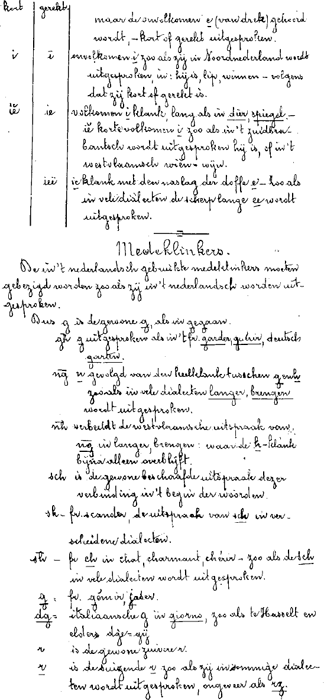 kort gerekt
maar de onvolkomen e (van drek) gehoord
wordt, - kort of gerekt uitgesproken.
i ī onvolkomen i zoo als zij in Noordnederland wordt
uitgesproken, in: hij is, lip, winnen - volgens
dat zij kort of gerekt is.
iĕ ie volkomen i klank, lang als in dier, spiegel -
iĕ korte volkomen i zoo als in 't zuidbra-
bantsch wordt uitgesproken hij is, of in 't
westvlaamsch wiên = wijn.
iei ie klank met den naslag der doffe e - zoo als
in vele dialecten de scherplange ee wordt
uitgesproken.
Medeklinkers.
De in 't nederlandsch gebruikte medeklinkers moeten
gebezigd worden zoo als zij in 't nederlandsch worden uit-
gesproken.
Dus g is de gewone g, als in gegaan.
gh g uitgesproken als in 't fr. garder, deutsch
garten.
ng n gevolgd van den keelklank tusschen g en k
zooals in vele dialecten langer, brengen
wordt uitgesproken.
nh verbeeldt de westvlaamsche uitspraak van
ng in langer, brengen: waar de h-klank
bijna alleen overblijft.
sch is de gewone beschaafde uitspraak dezer
verbinding in 't begin der woorden.
sk - fr. scander, de uitspraak van sch in ver-
scheidene dialecten.
sh - fr ch in chat, charmant, - zoo als de sch
in vele dialecten wordt uitgesproken.
g = fr. génie,
dg = italiaansche g in giorno, zoo als te Hasselt en
elders dge = gij
r is de gewone zuivere r.
r is de zuigende r zoo als zij in sommige dialec-
ten wordt uitgesproken, ongeveer als rz.